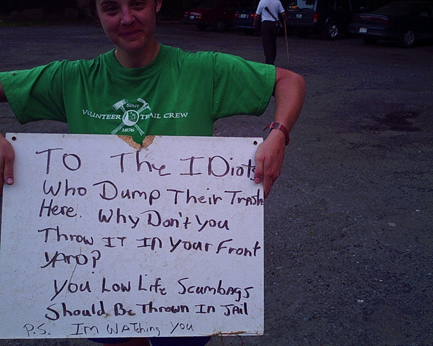 Since
VOLUNTEER TRAIL CREW
1876
To The IDiots
Who Dump Their Trash
Here. Why Don't You
Throw IT In Your Front
yArD?
you Low Life Scumbags
Should Be Thrown In Jail
P.S. Im WAtching You